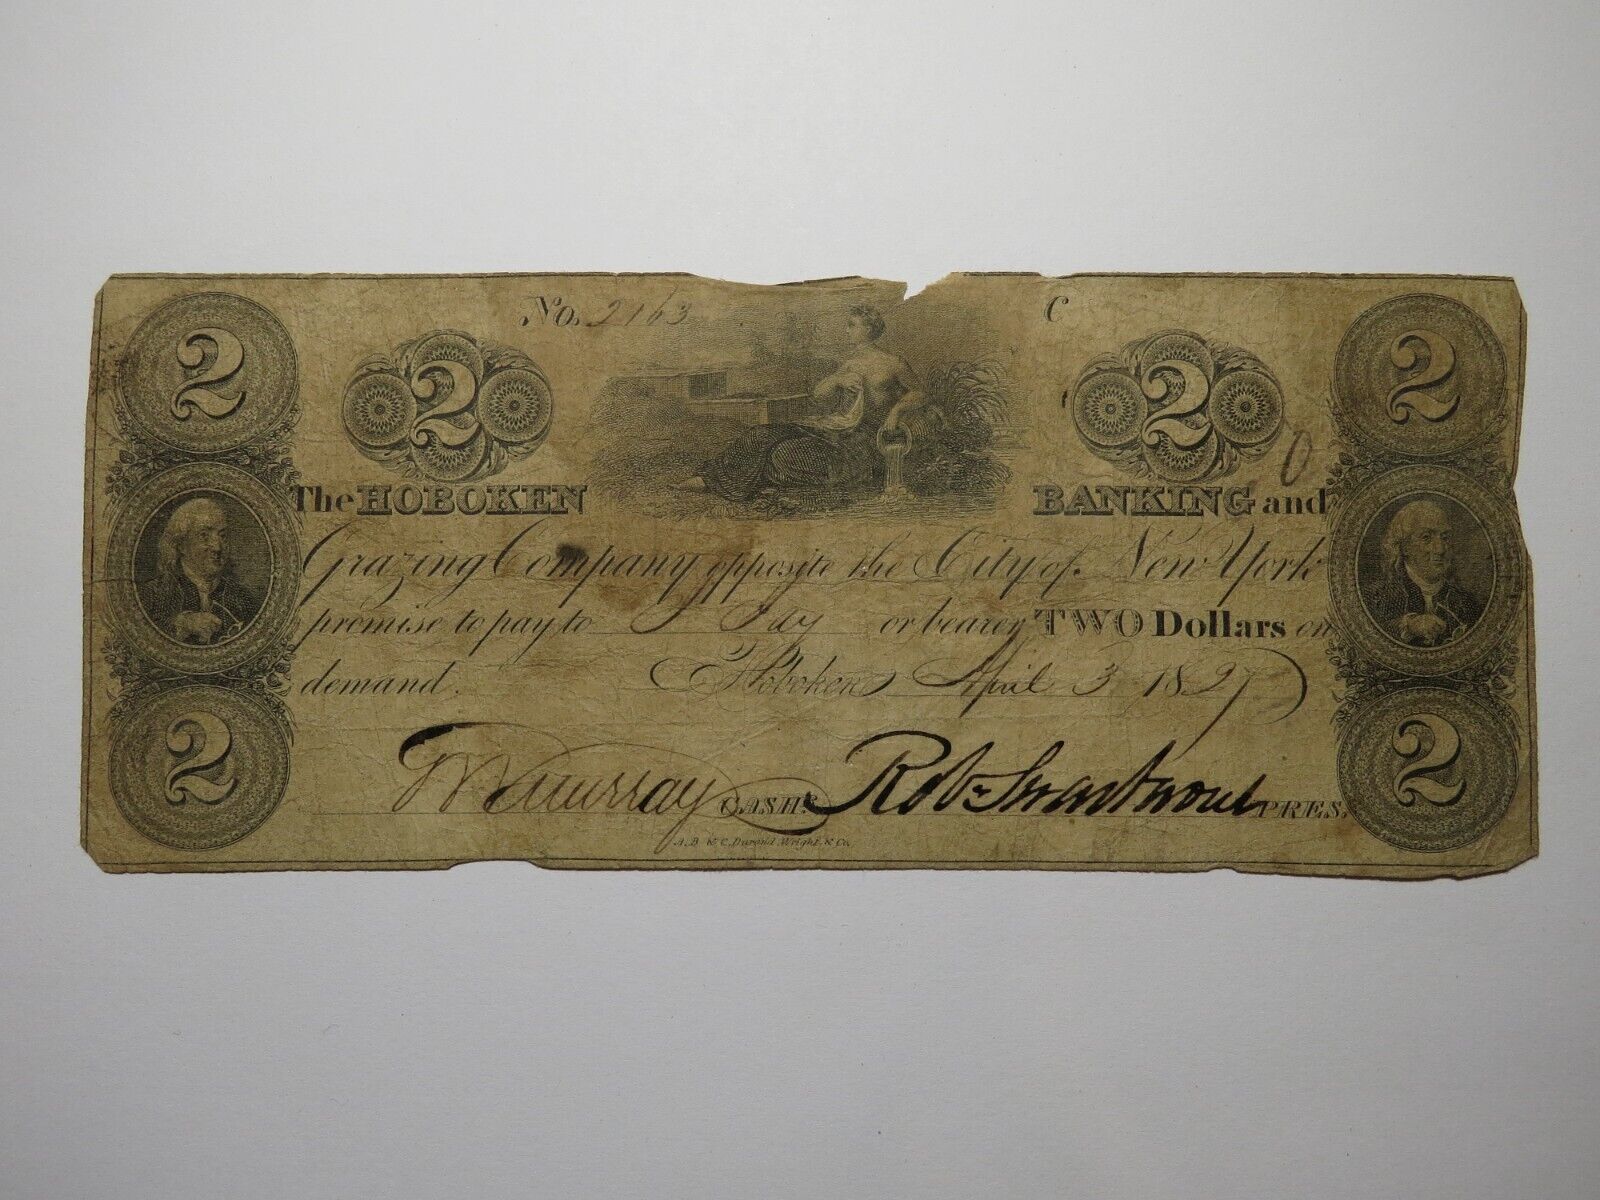 No. 2163 C
2 2 2 2
The HOBOKEN BANKING and
Grazing Company opposite the City of New York
promise to pay to or bearer TWO Dollars on
demand. Hoboken April 3 1827
2 2
Murray CASHR. Robt Swartwout PRES.
A.B. & C. Durand, Wright & Co.